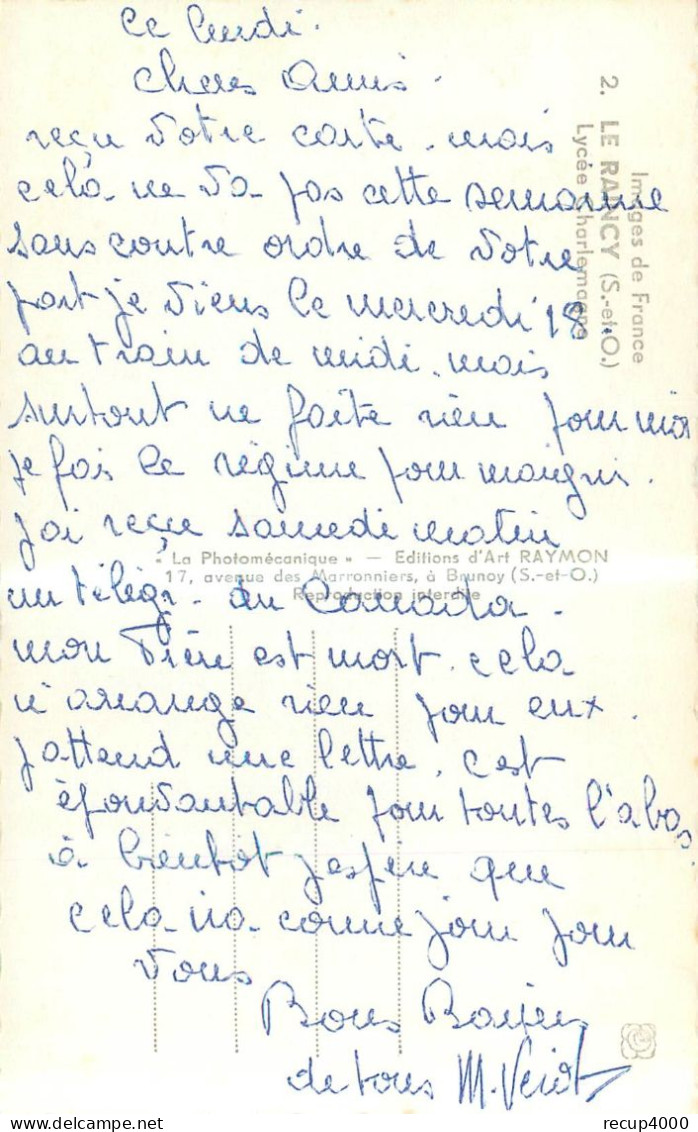 ce lundi.
chers Amis.
reçu votre carte. mais
celà ne va pas cette semaine
sans contre ordre de votre
part je viens le mercredi 18.
au train de midi. mais
surtout ne faite rien pour moi
je fais le régime pour maigrir.
j'ai reçu samedi matin
un télégr. du Canada.
mon Père est mort. cela
n'arrange rien pour eux.
j'attend une lettre. c'est
épouvantable pour toutes l'abas.
à bientôt j'espère que
cela va comme pour
vous
Bons Baisers
de tous M.
Images de France
2. LE RAINCY (S.-et-O.)
Lycée Charlemagne
« La Photomécanique » — Editions d'Art RAYMON
17, avenue des Marronniers, à Brunoy (S.-et-O.)
Reproduction interdite
www.recup4000.com